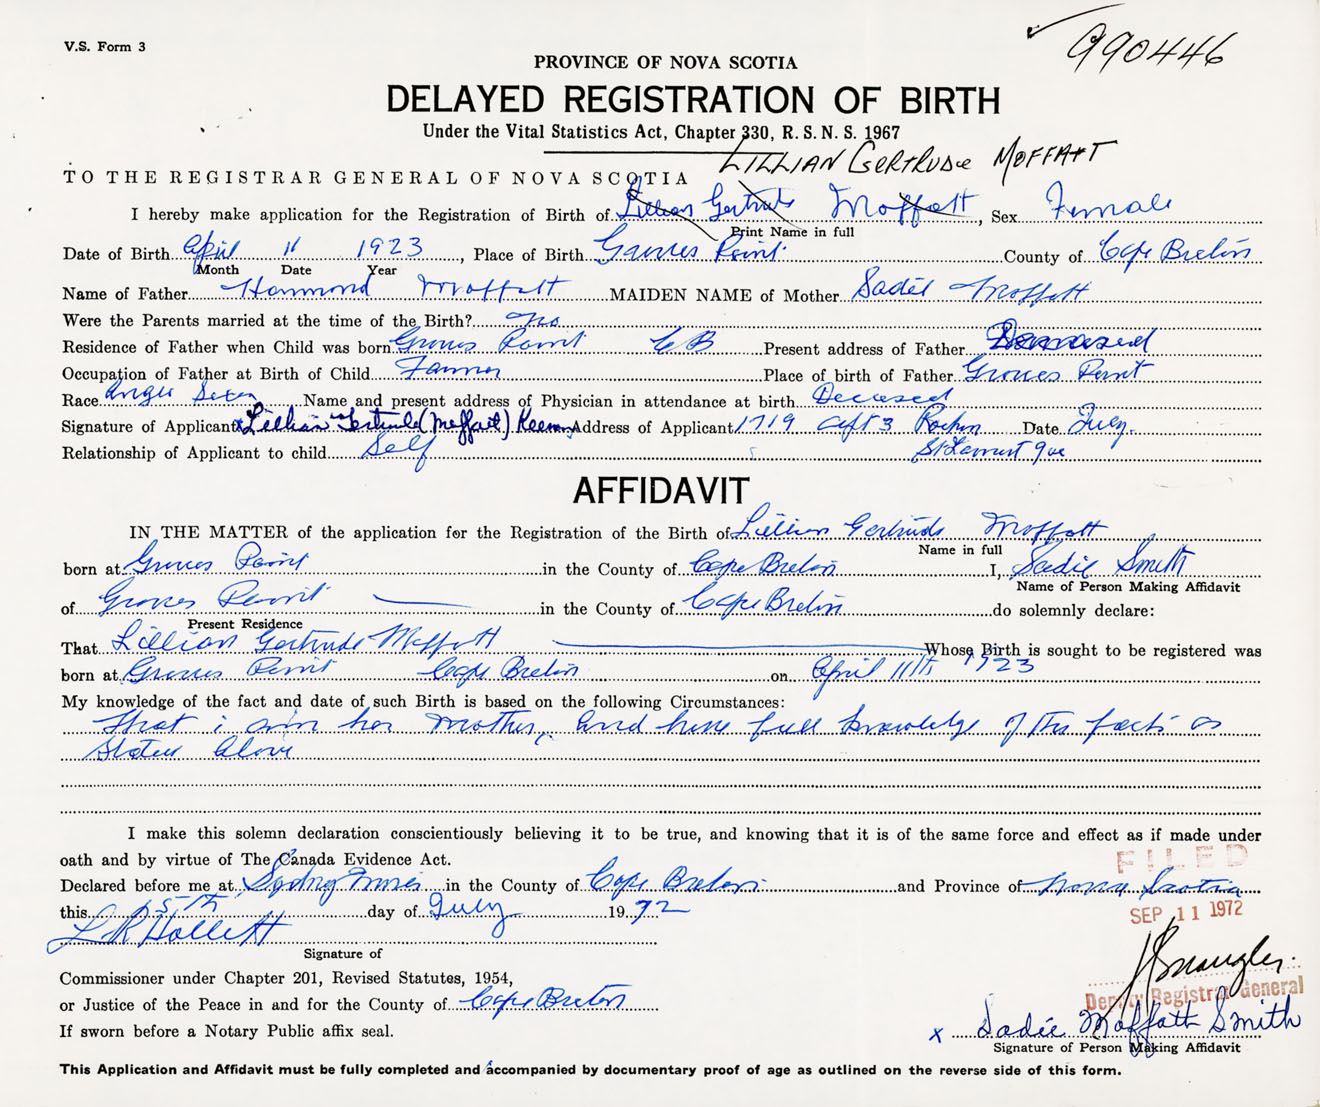 V.S. Form 3
990446
PROVINCE OF NOVA SCOTIA
DELAYED REGISTRATION OF BIRTH
Under the Vital Statistics Act, Chapter 330, R. S. N. S. 1967
LILLIAN GERTRUDE MOFFATT
TO THE REGISTRAR GENERAL OF NOVA SCOTIA
I hereby make application for the Registration of Birth of Lillian Gertrude Moffatt, Sex Female
Print Name in full
Date of Birth April 11 1923, Place of Birth Groves Point County of Cape Breton
Month Date Year
Name of Father Hammond Moffatt MAIDEN NAME of Mother Sadie Moffatt
Were the Parents married at the time of the Birth? no
Residence of Father when Child was born Groves Point C B Present address of Father Deceased
Occupation of Father at Birth of Child Farmer Place of birth of Father Groves Point
Race Anglo Saxon Name and present address of Physician in attendance at birth Deceased
Signature of Applicant x Lillian Gertrude (Moffatt) Address of Applicant 1719 apt 3 Date July
Relationship of Applicant to child Self St Laurent Que
AFFIDAVIT
IN THE MATTER of the application for the Registration of the Birth of Lillian Gertrude Moffatt
Name in full
born at Groves Point in the County of Cape Breton I, Sadie Smith
Name of Person Making Affidavit
of Groves Point in the County of Cape Breton do solemnly declare:
Present Residence
That Lillian Gertrude Moffatt Whose Birth is sought to be registered was
born at Groves Point Cape Breton on April 11th 1923
My knowledge of the fact and date of such Birth is based on the following Circumstances:
That i am her mother, and have full knowledge of the facts as
stated above
I make this solemn declaration conscientiously believing it to be true, and knowing that it is of the same force and effect as if made under
oath and by virtue of The Canada Evidence Act.
FILED
Declared before me at Sydney Mines in the County of Cape Breton and Province of Nova Scotia
this 5th day of July 1972
SEP 11 1972
L R Hollett
Signature of
Commissioner under Chapter 201, Revised Statutes, 1954,
Deputy Registrar General
or Justice of the Peace in and for the County of Cape Breton
x Sadie Moffatt Smith
If sworn before a Notary Public affix seal.
Signature of Person Making Affidavit
This Application and Affidavit must be fully completed and accompanied by documentary proof of age as outlined on the reverse side of this form.